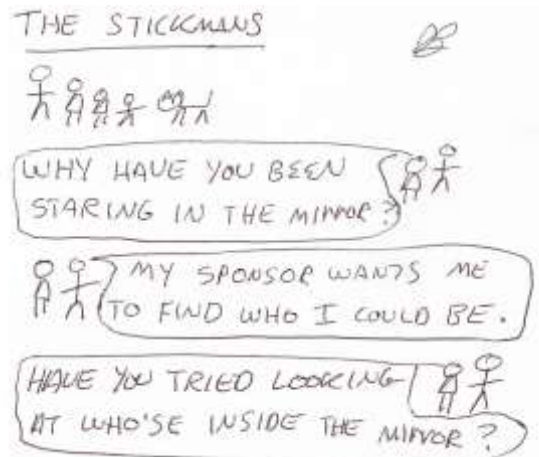 THE STICKMANS
WHY HAVE YOU BEEN
STARING IN THE MIRROR?
MY SPONSOR WANTS ME
TO FIND WHO I COULD BE.
HAVE YOU TRIED LOOKING
AT WHO'SE INSIDE THE MIRROR?